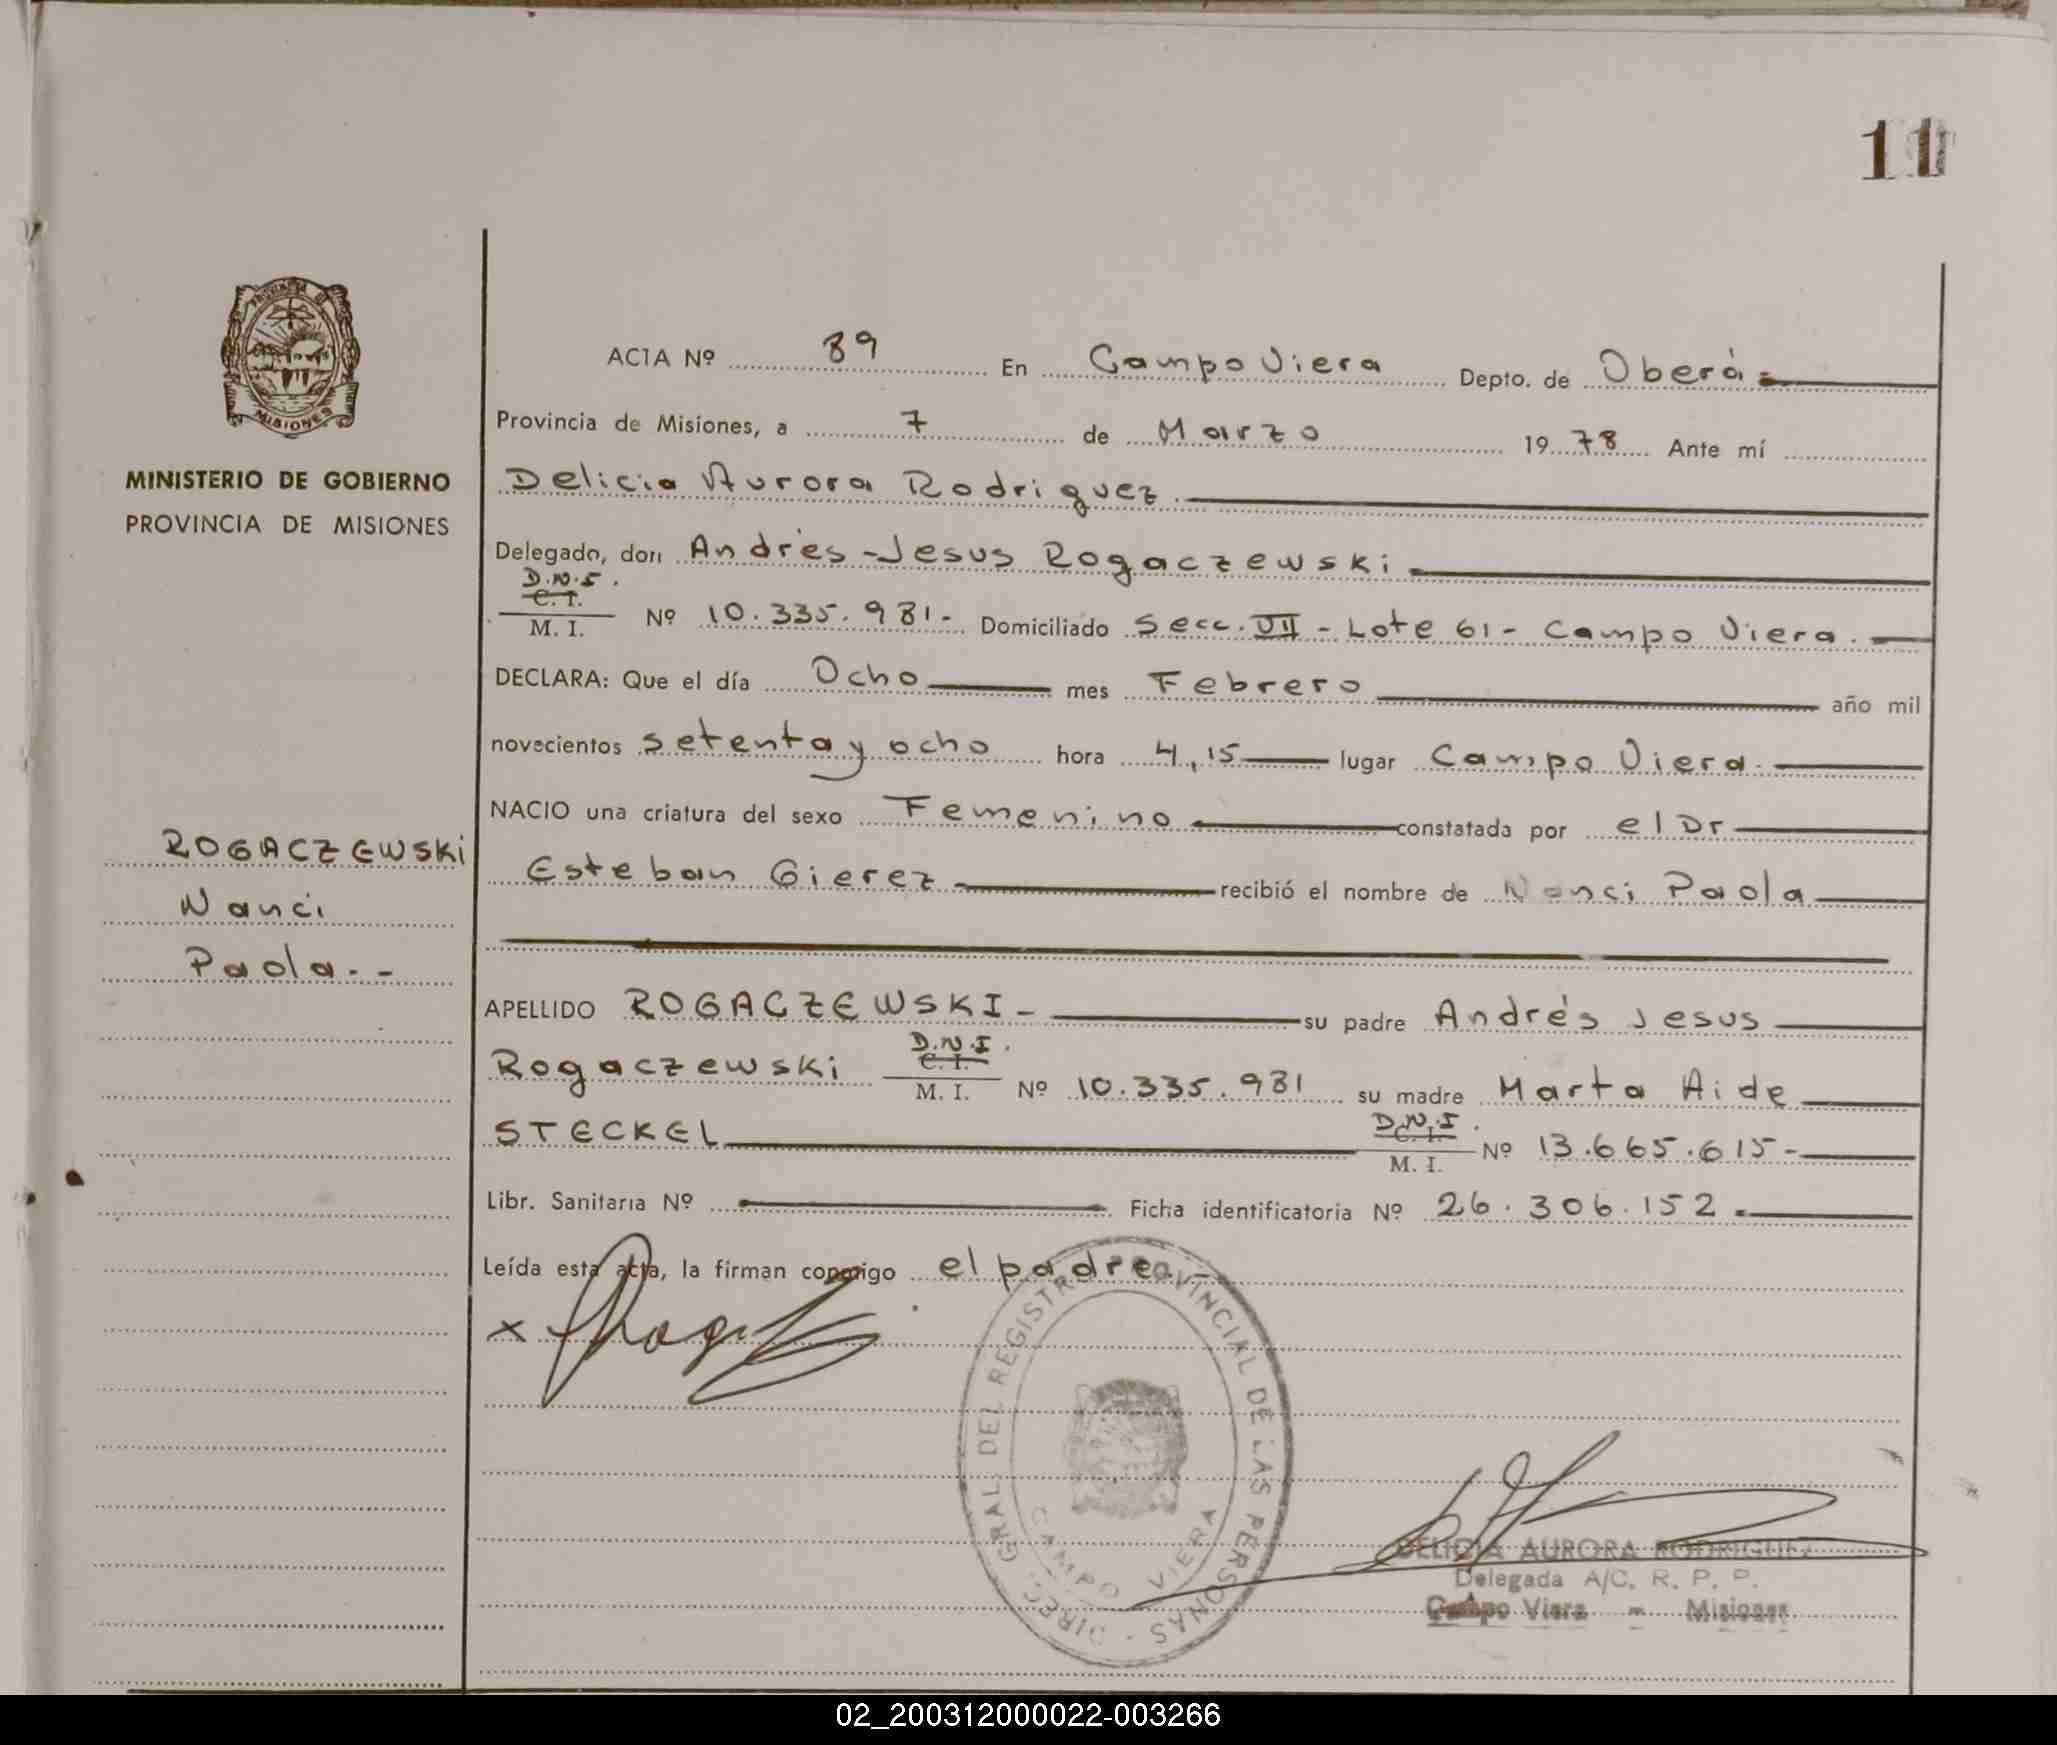 11
PROVINCIA DE
MISIONES
MINISTERIO DE GOBIERNO
PROVINCIA DE MISIONES
ROGACZEWSKi
Nanci
Paola.-
ACTA Nº 89 En Campo Viera Depto. de Oberá
Provincia de Misiones, a 7 de Marzo 1978 Ante mí
Delicia Aurora Rodriguez.
Delegado, don Andrés-Jesus Rogaczewski
D.N.I.
C. I.
M. I. Nº 10.335.981- Domiciliado Secc. VII - Lote 61 - Campo Viera.
DECLARA: Que el día Ocho mes Febrero año mil
novecientos setenta y ocho hora 4,15 lugar Campo Viera.
NACIO una criatura del sexo Femenino constatada por el Dr
Esteban Gierez recibió el nombre de Nanci Paola
APELLIDO ROGACZEWSKI- su padre Andrés Jesus
D.N.I.
C. I.
Rogaczewski M. I. Nº 10.335.981 su madre Marta Aide
D.N.I.
C. I.
STECKEL M. I. Nº 13.665.615-
Libr. Sanitaria Nº Ficha identificatoria Nº 26.306.152.
Leída esta acta, la firman conmigo el padre
x
DIREC. GRAL. DEL REGISTRO PROVINCIAL DE LAS PERSONAS
CAMPO VIERA
DELICIA AURORA RODRIGUEZ
Delegada A/C. R. P. P.
Campo Viera - Misiones
02_200312000022-003266